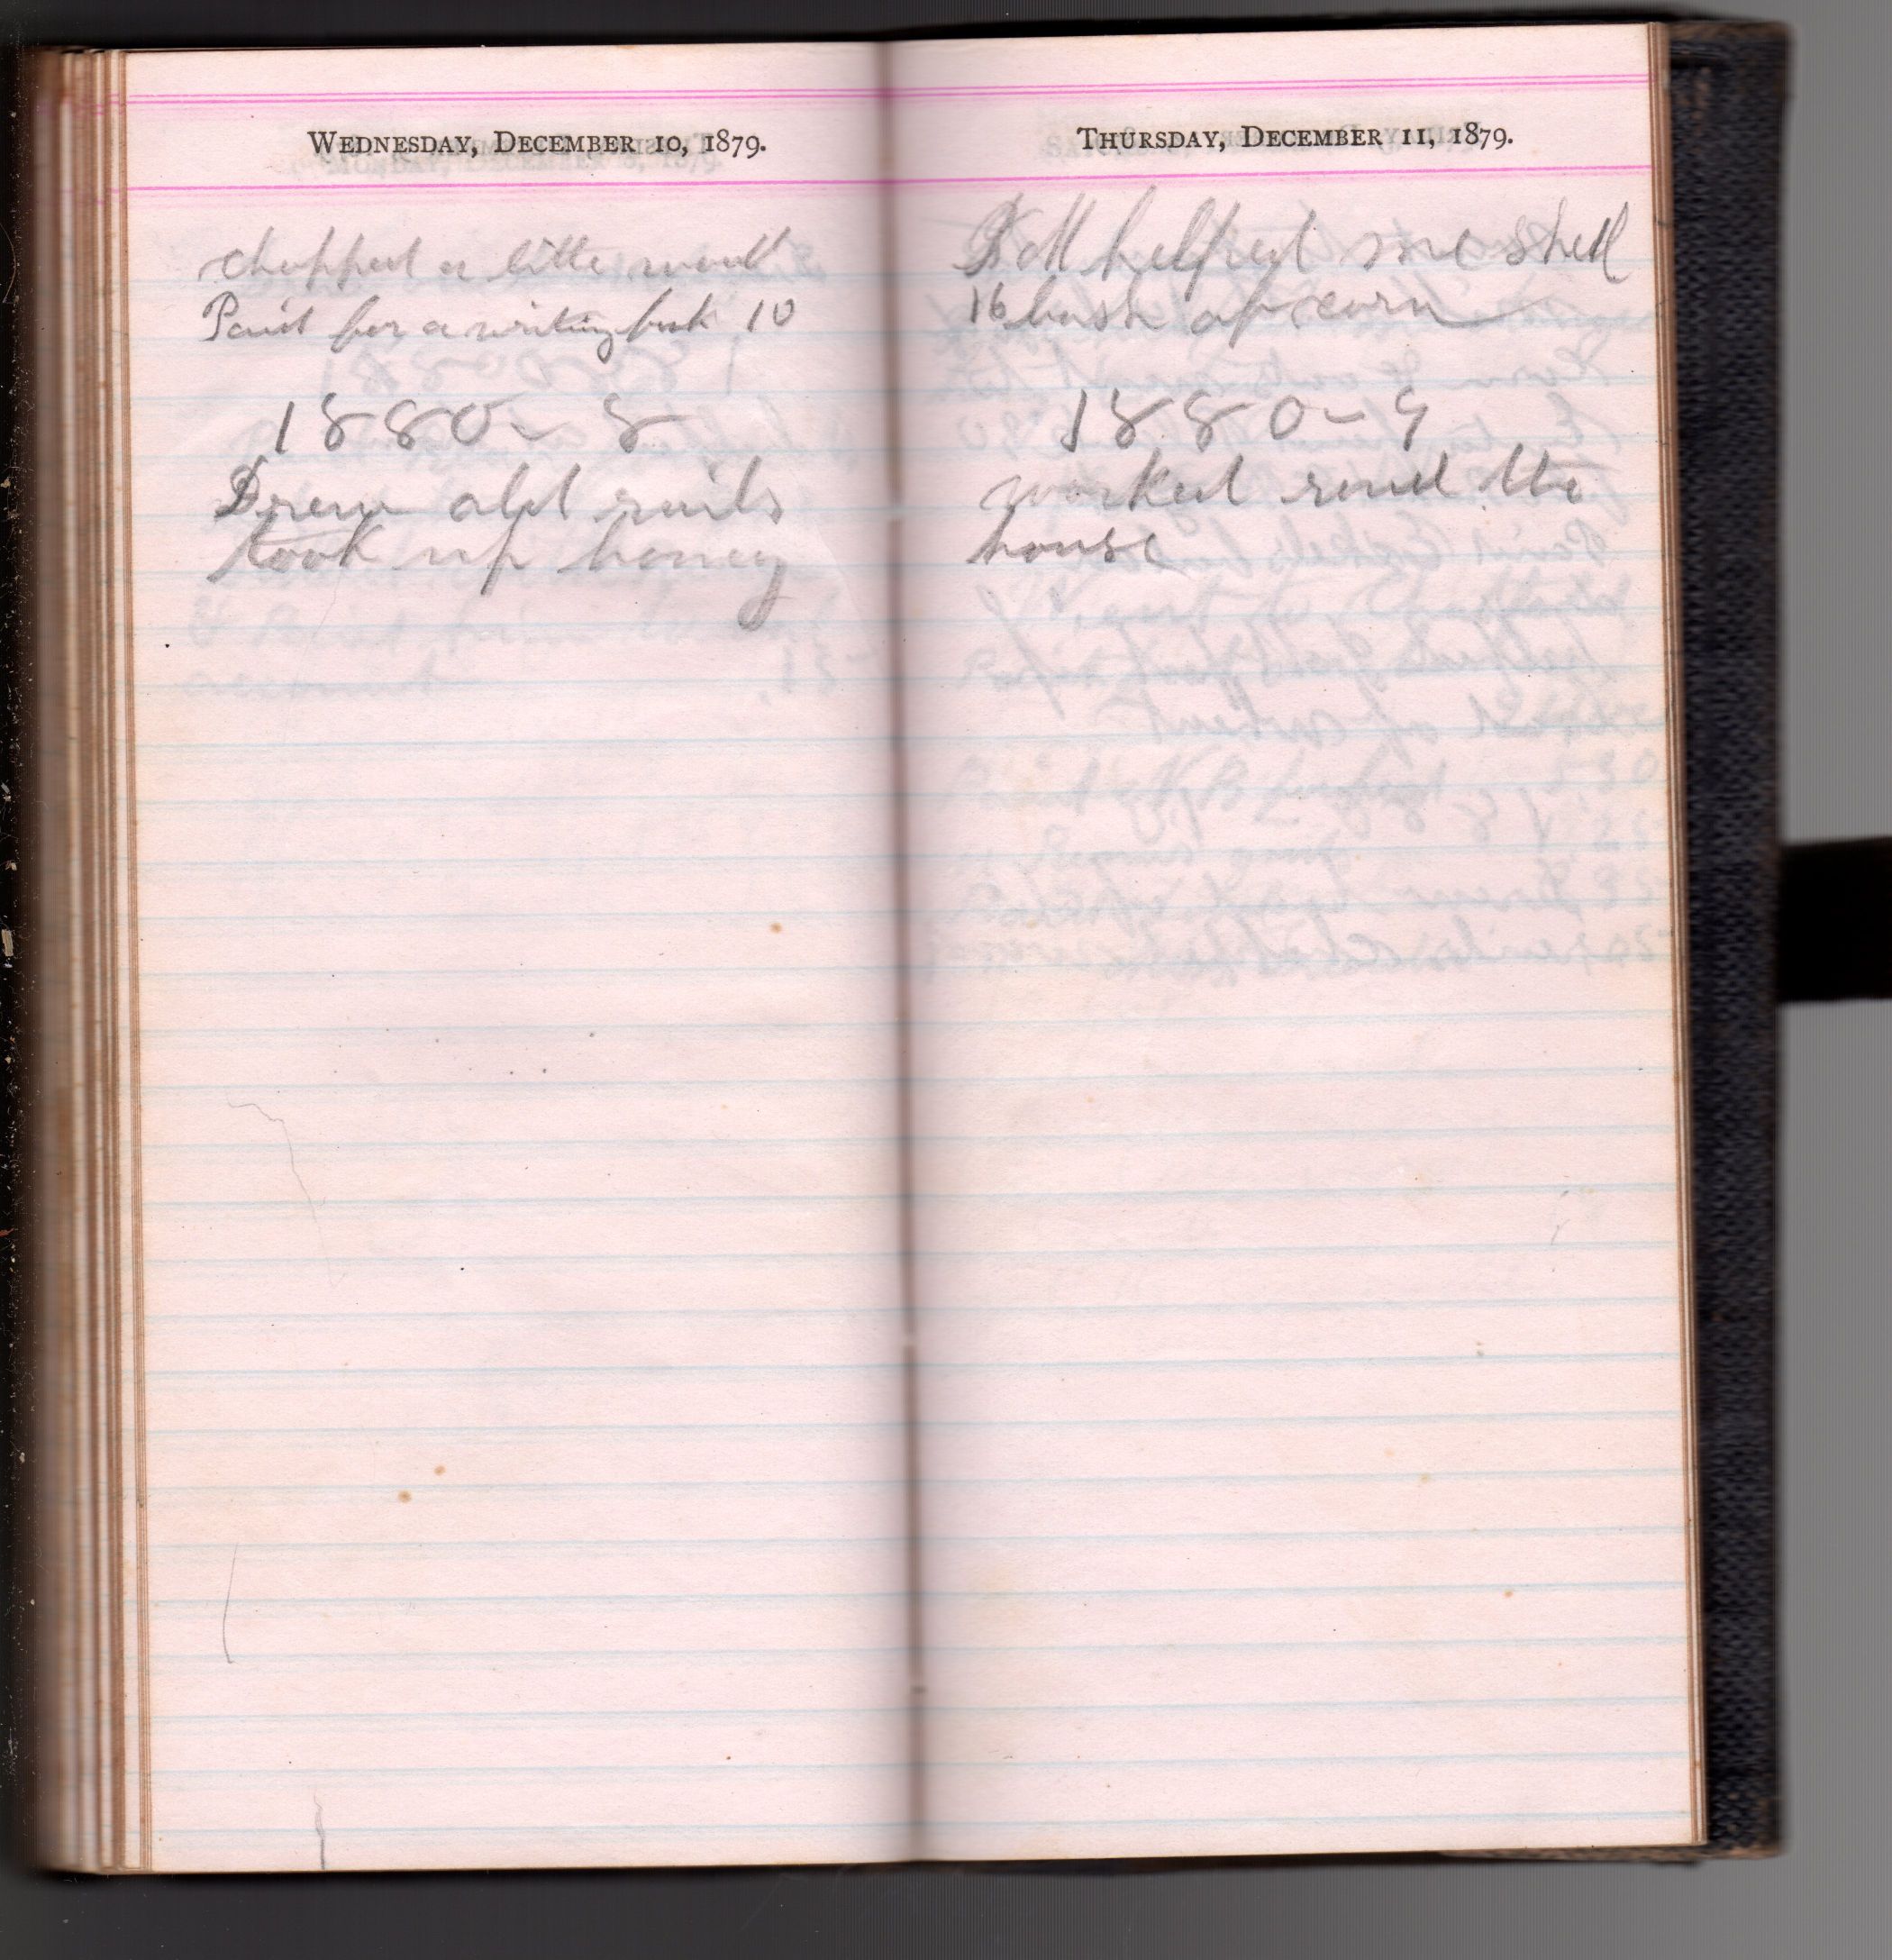 WEDNESDAY, DECEMBER 10, 1879.
chopped a little wood
Paid for a writing book 10
1880 - 8
Drew old rails
took up honey
THURSDAY, DECEMBER 11, 1879.
helped me shell
16 bush of corn
1880 - 9
worked round the
house